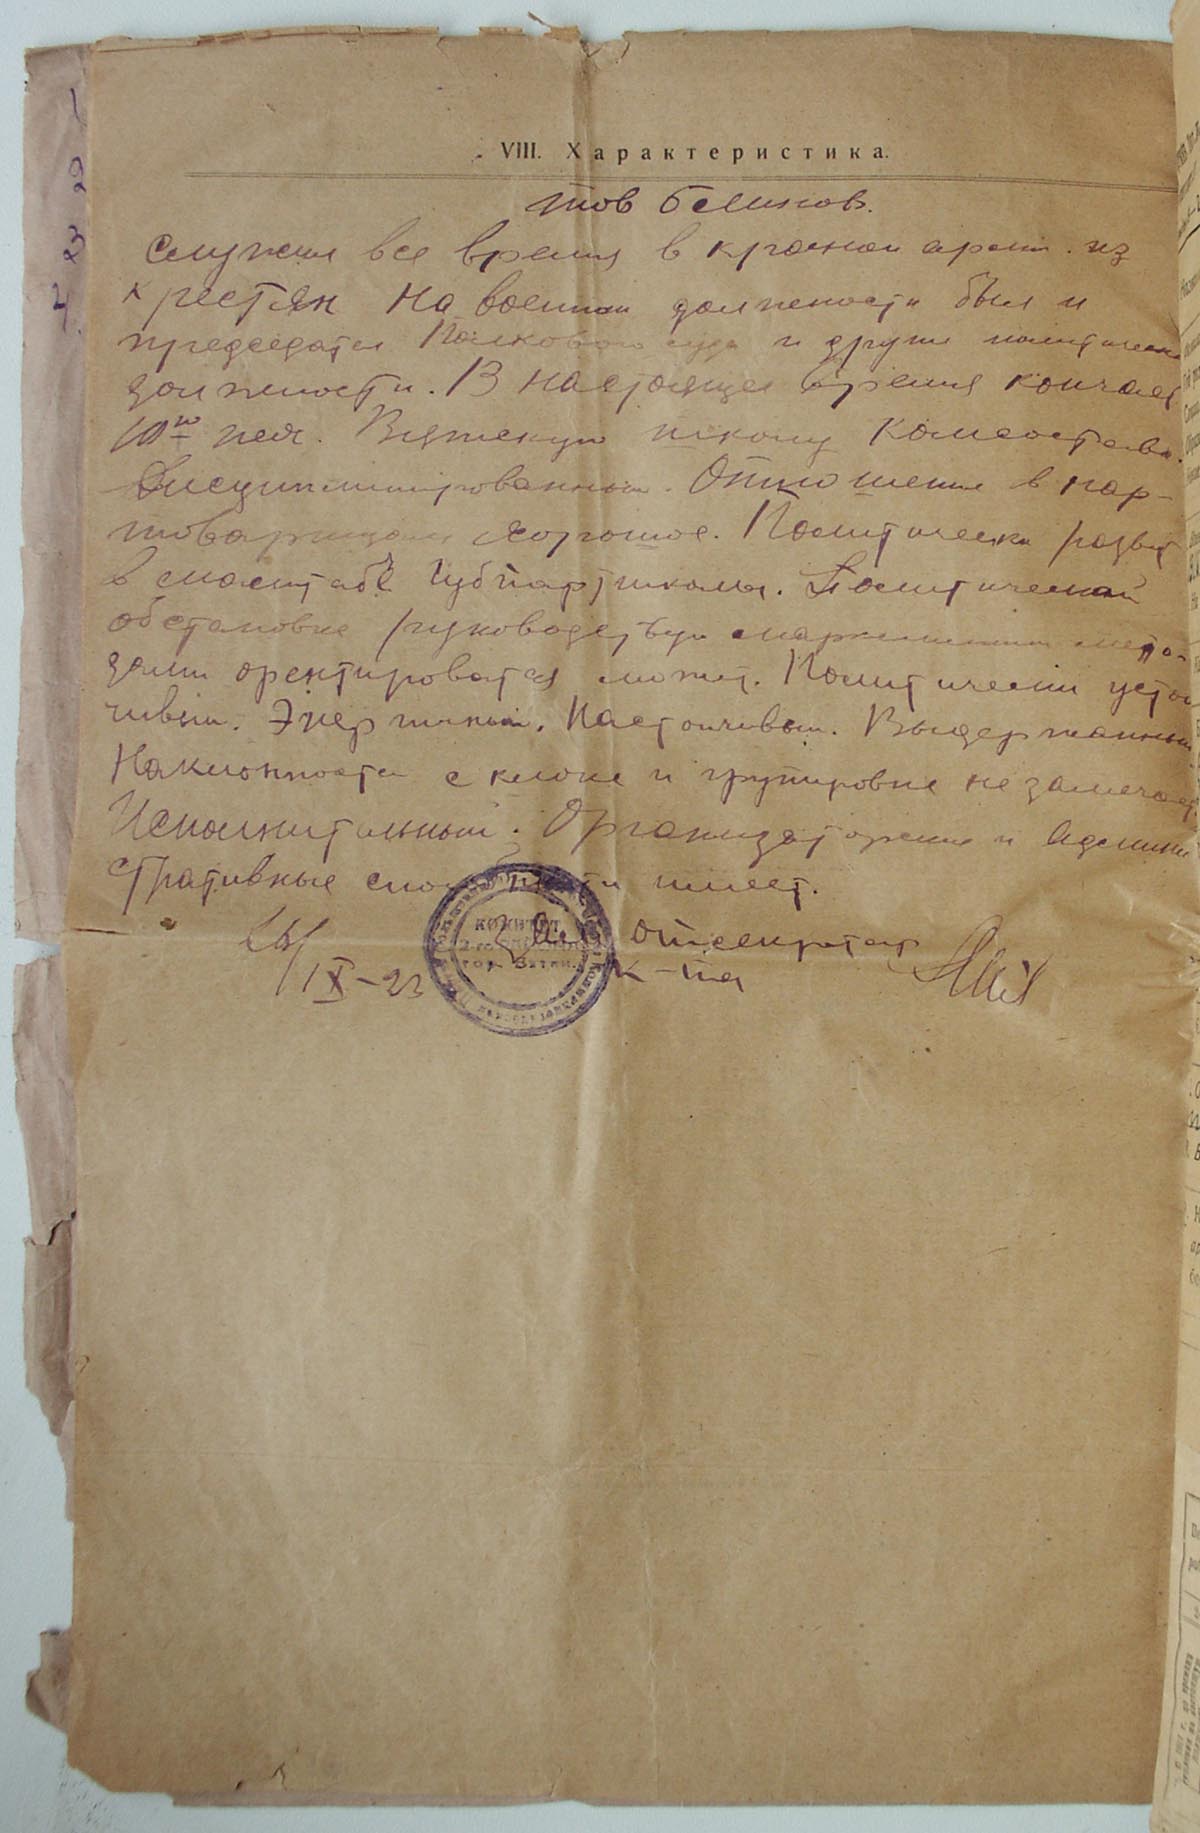 VIII. Характеристика.
тов Беликов.
Служил все время в красной арми. из
крестьян На военной должности был и
председател Полкового суда и други политическ
должности. В настоящее время кончает
10ю пех. Вятскую школу Комсостава.
Дисциплинированный. Отношение в пар-
товарищам хорошое. Политически развит
в масштабе Губпартшколы. Политической
обстановке руководствуя марксиским мето-
дами орентироватся может. Политически устой
чивый. Энергичный. Настойчивый. Выдержанный
Наклонности к склоке и групировке не замечает
Исполнительный. Организаторские и Админи
стративные способности имеет.
IX-23
Отсекретат
К-та
КОМИТЕТ
гор. Вятки